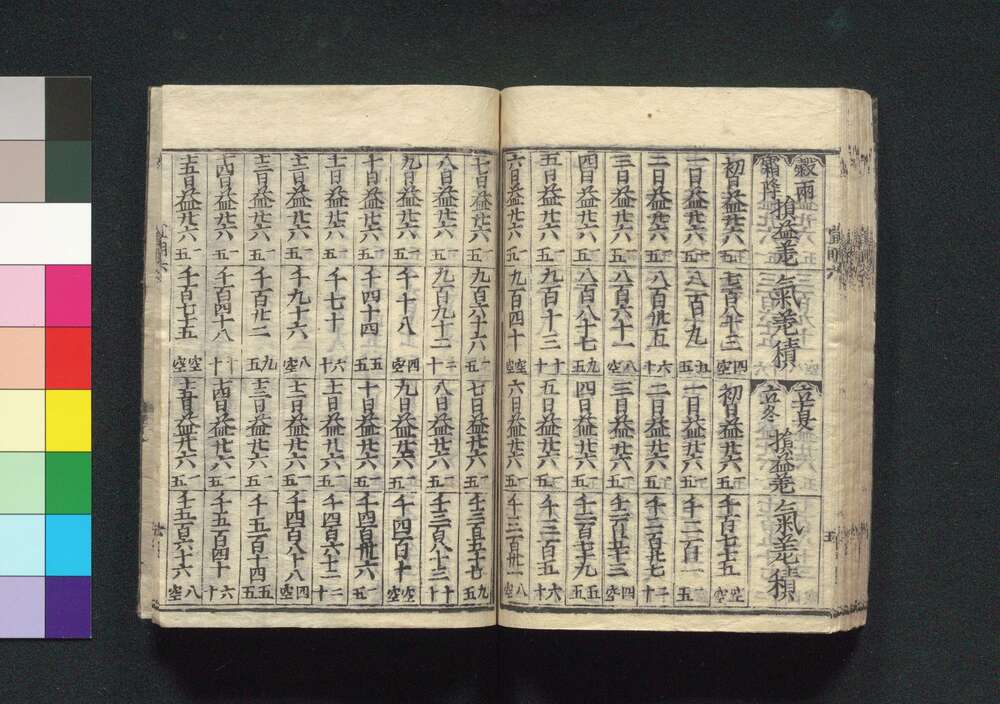 穀雨 霜降 損益差 氣差積
初日益廿六 一五 七百八十三 四空
一日益廿六 一五 八百九 五五
二日益廿六 一五 八百卅五 六十
三日益廿六 一五 八百六十一 八空
四日益廿六 一五 八百八十七 九五
五日益廿六 一五 九百十三 十十
六日益廿六 一五 九百四十 空空
七日益廿六 一五 九百六十六 一五
八日益廿六 一五 九百九十二 二十
九日益廿六 一五 千十八 四空
十日益廿六 一五 千四十四 五五
十一日益廿六 一五 千七十 六十
十二日益廿六 一五 千九十六 八空
十三日益廿六 一五 千百廿二 九五
十四日益廿六 一五 千百四十八 十十
十五日益廿六 一五 千百七十五 空空
立夏 立冬 損益差 氣差積
初日益廿六 一五 千百七十五 空空
一日益廿六 一五 千二百一 一五
二日益廿六 一五 千二百廿七 二十
三日益廿六 一五 千二百五十三 四空
四日益廿六 一五 千二百七十九 五五
五日益廿六 一五 千三百五 六十
六日益廿六 一五 千三百卅一 八空
七日益廿六 一五 千三百五十七 九五
八日益廿六 一五 千三百八十三 十十
九日益廿六 一五 千四百十 空空
十日益廿六 一五 千四百卅六 一五
十一日益廿六 一五 千四百六十二 二十
十二日益廿六 一五 千四百八十八 四空
十三日益廿六 一五 千五百十四 五五
十四日益廿六 一五 千五百四十 六十
十五日益廿六 一五 千五百六十六 八空